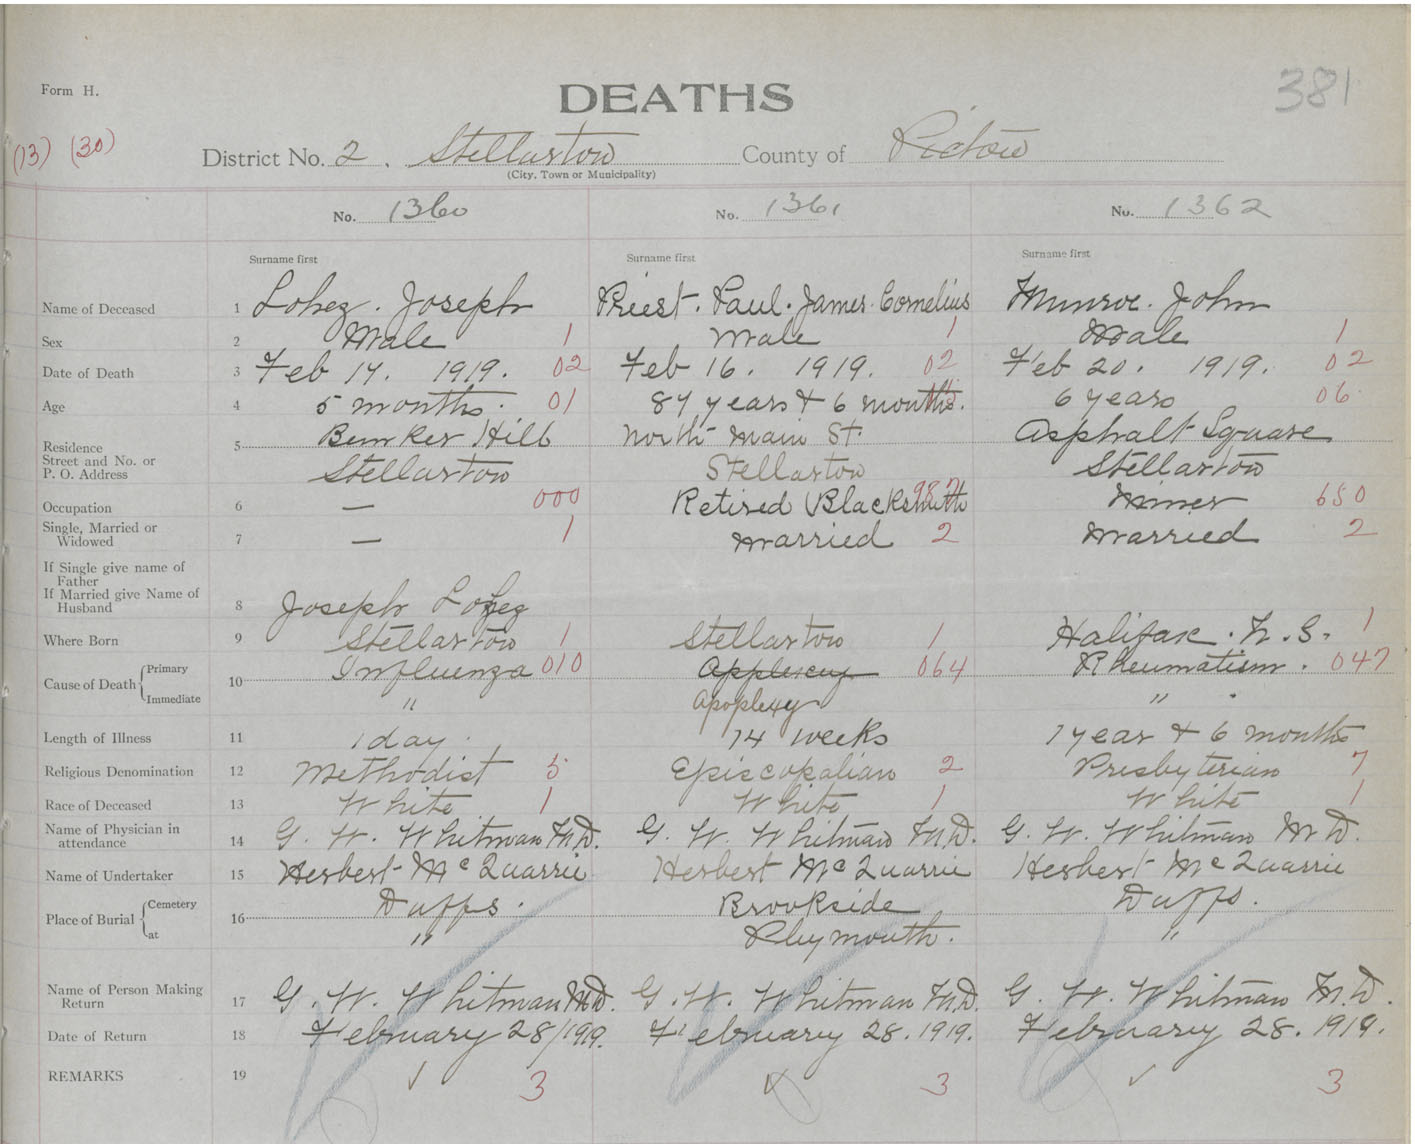 381
Form H.
DEATHS
(13) (30)
District No. 2. Stellarton County of Pictou
(City, Town or Municipality)
No. 1360 No. 1361 No. 1362
Surname first Surname first Surname first
Name of Deceased 1 Lopez. Joseph Priest. Paul. James. Cornelius Munroe. John
Sex 2 Male 1 Male 1 Male 1
Date of Death 3 Feb 17. 1919. 02 Feb 16. 1919. 02 Feb 20. 1919. 02
Age 4 5 months. 01 87 years & 6 months. 6 years 06
Residence Street and No. or P. O. Address 5 Bunker Hill North Main St. Asphalt Square
Stellarton Stellarton Stellarton
Occupation 6 — 000 Retired Blacksmith Miner 650
Single, Married or Widowed 7 — 1 Married 2 Married 2
If Single give name of
Father
If Married give Name of
Husband 8 Joseph Lopez
Where Born 9 Stellarton 1 Stellarton 1 Halifax. N. S. 1
Cause of Death Primary 10 Influenza 010 064 Rheumatism. 047
Immediate " Apoplexy "
Length of Illness 11 1 day. 14 weeks 1 year & 6 months
Religious Denomination 12 Methodist 5 Episcopalian 2 Presbyterian 7
Race of Deceased 13 White 1 White 1 White 1
Name of Physician in attendance 14 G. W. Whitman M.D. G. W. Whitman M.D. G. W. Whitman M D.
Name of Undertaker 15 Herbert McQuarrie Herbert McQuarrie Herbert McQuarrie
Place of Burial Cemetery 16 Duffs. Brookside Duffs.
at " Plymouth. "
Name of Person Making Return 17 G. W. Whitman M.D. G. W. Whitman M.D. G. W. Whitman M.D.
Date of Return 18 February 28/1919. February 28. 1919. February 28. 1919.
REMARKS 19 3 3 3